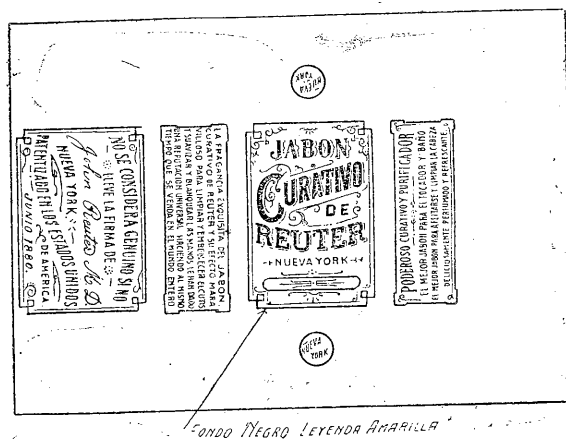 NUEVA
YORK
NO SE CONSIDERA GENUINO SI NO
LLEVE LA FIRMA DE
John Reuter M.D.
NUEVA YORK.
PATENTIZADO EN LOS ESTADOS UNIDOS
DE AMERICA.
JUNIO 1880.
LA FRAGANCIA EXQUISITA DEL JABON
CURATIVO DE REUTER Y SU EFECTO MARA
VILLOSO PARA LIMPIAR Y EMBELLECER EL CUTIS
Y SUAVIZAR Y BLANQUEAR LAS MANOS, LE HAN DADO
UNA REPUTACION UNIVERSAL HACIENDO AL MISMO
TIEMPO QUE SE VENDA EN EL MUNDO ENTERO
JABON
CURATIVO
DE
REUTER
NUEVA YORK
PODEROSO CURATIVO Y PURIFICADOR
EL MEJOR JABON PARA EL TOCADOR Y BAÑO
EL MEJOR JABON PARA AFEITARSE Y LIMPIAR LA CABEZA
DELICIOSAMENTE PERFUMADO Y REFRESCANTE.
NUEVA
YORK
FONDO NEGRO LEYENDA AMARILLA